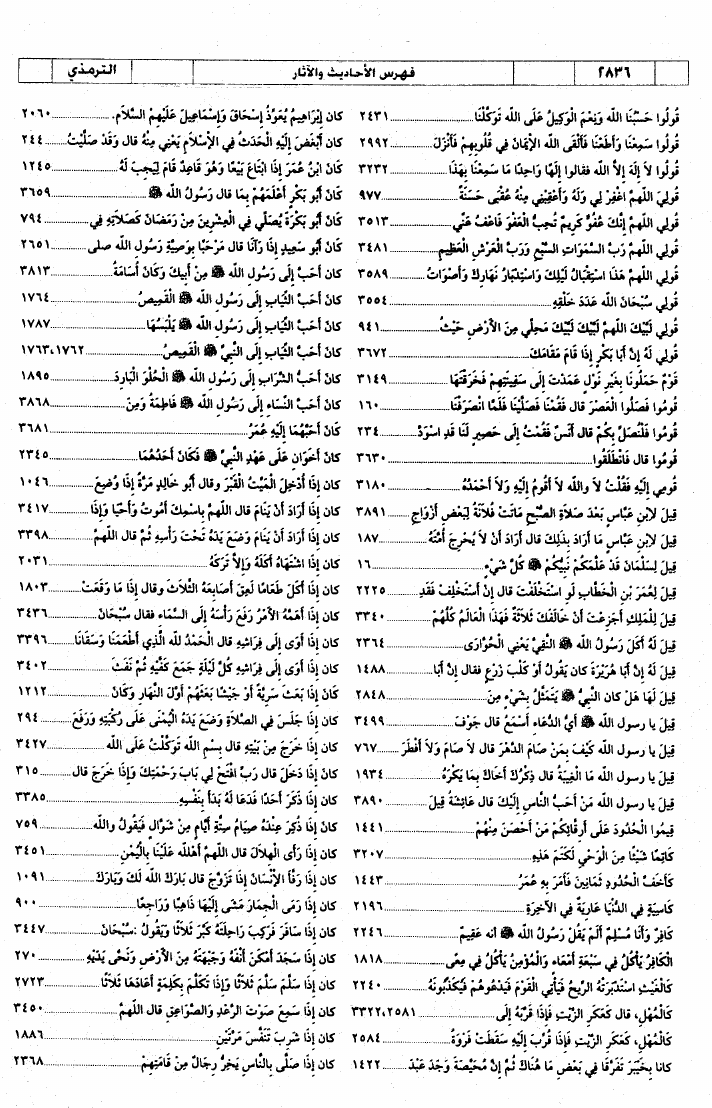 ٢٨٣٦
فهرس الأحاديث والآثار
الترمذي
قُولُوا حَسْبُنَا اللَّه وَنِعْمَ الْوَكِيلُ عَلَى اللَّه تَوَكَّلْنَا ٢٤٣١
قُولُوا سَمِعْنَا وَأَطَعْنَا فَأَلْقَى اللَّه الإِيمَانَ فِي قُلُوبِهِمْ فَأَنْزَلَ ٢٩٩٢
قُولُوا لاَ إِلَهَ إِلاَّ اللَّه فقالوا إِلَهًا وَاحِدًا مَا سَمِعْنَا بِهَذَا ٣٢٣٢
قُولِيَ اللهمَّ اغْفِرْ لِي وَلَهُ وَأَعْقِبْنِي مِنْهُ عُقْبَى حَسَنَةً ٩٧٧
قُولِي اللهمَّ إِنَّكَ عَفُوٌّ كَرِيمٌ تُحِبُّ الْعَفْوَ فَاعْفُ عَنِّي ٣٥١٣
قُولِي اللهمَّ رَبَّ السَّمَوَاتِ السَّبْعِ وَرَبَّ الْعَرْشِ الْعَظِيمِ ٣٤٨١
قُولِي اللهمَّ هَذَا اسْتِقْبَالُ لَيْلِكَ وَاسْتِدْبَارُ نَهَارِكَ وَأَصْوَاتُ ٣٥٨٩
قُولِي سُبْحَانَ اللَّه عَدَدَ خَلْقِهِ ٣٥٥٤
قُولِي لَبَّيْكَ اللهمَّ لَبَّيْكَ لَبَّيْكَ مَحِلِّي مِنَ الأَرْضِ حَيْثُ ٩٤١
قُولِي لَهُ إِنَّ أَبَا بَكْرٍ إِذَا قَامَ مَقَامَكَ ٣٦٧٢
قَوْمٌ حَمَلُونَا بِغَيْرِ نَوْلٍ عَمَدْتَ إِلَى سَفِينَتِهِمْ فَخَرَقْتَهَا ٣١٤٩
قُومُوا فَصَلُّوا الْعَصْرَ قال فَقُمْنَا فَصَلَّيْنَا فَلَمَّا انْصَرَفْنَا ١٦٠
قُومُوا فَلْنُصَلِّ بِكُمْ قال أَنَسٌ فَقُمْتُ إِلَى حَصِيرٍ لَنَا قَدِ اسْوَدَّ ٢٣٤
قُومُوا قال فَانْطَلَقُوا ٣٦٣٠
قُومِي إِلَيْهِ فَقُلْتُ لاَ واللَّه لاَ أَقُومُ إِلَيْهِ وَلاَ أَحْمَدُهُ ٣١٨٠
قِيلَ لاِبْنِ عَبَّاسٍ بَعْدَ صَلاَةِ الصُّبْحِ مَاتَتْ فُلاَنَةُ لِبَعْضِ أَزْوَاجِ ٣٨٩١
قِيلَ لاِبْنِ عَبَّاسٍ مَا أَرَادَ بِذَلِكَ قال أَرَادَ أَنْ لاَ يُحْرِجَ أُمَّتَهُ ١٨٧
قِيلَ لِسَلْمَانَ قَدْ عَلَّمَكُمْ نَبِيُّكُمْ ﷺ كُلَّ شَيْءٍ ١٦
قِيلَ لِعُمَرَ بْنِ الْخَطَّابِ لَوِ اسْتَخْلَفْتَ قال إِنْ أَسْتَخْلِفْ فَقَدِ ٢٢٢٥
قِيلَ لِلْمَلِكِ أَجَزِعْتَ أَنْ خَالَفَكَ ثَلاَثَةٌ فَهَذَا الْعَالَمُ كُلُّهُمْ ٣٣٤٠
قِيلَ لَهُ أَكَلَ رَسُولُ اللَّه ﷺ النَّقِيَّ يَعْنِي الْحُوَّارَى ٢٣٦٤
قِيلَ لَهُ إِنَّ أَبَا هُرَيْرَةَ كان يَقُولُ أَوْ كَلْبَ زَرْعٍ فقال إِنَّ أَبَا ١٤٨٨
قِيلَ لَهَا هَلْ كان النَّبِيُّ ﷺ يَتَمَثَّلُ بِشَيْءٍ مِنَ ٢٨٤٨
قِيلَ يا رسول اللَّه ﷺ أَيُّ الدُّعَاءِ أَسْمَعُ قال جَوْفَ ٣٤٩٩
قِيلَ يا رسول اللَّه كَيْفَ بِمَنْ صَامَ الدَّهْرَ قال لاَ صَامَ وَلاَ أَفْطَرَ ٧٦٧
قِيلَ يا رسول اللَّه مَا الْغِيبَةُ قال ذِكْرُكَ أَخَاكَ بِمَا يَكْرَهُ ١٩٣٤
قِيلَ يا رسول اللَّه مَنْ أَحَبُّ النَّاسِ إِلَيْكَ قال عَائِشَةُ قِيلَ ٣٨٩٠
قِيمُوا الْحُدُودَ عَلَى أَرِقَّائِكُمْ مَنْ أَحْصَنَ مِنْهُمْ ١٤٤١
كَاتِمًا شَيْئًا مِنَ الْوَحْيِ لَكَتَمَ هَذِهِ ٣٢٠٧
كَأَخَفِّ الْحُدُودِ ثَمَانِينَ فَأَمَرَ بِهِ عُمَرُ ١٤٤٣
كَاسِيَةٍ فِي الدُّنْيَا عَارِيَةٌ فِي الآخِرَةِ ٢١٩٦
كَافِرٌ وَأَنَا مُسْلِمٌ أَلَمْ يَقُلْ رَسُولُ اللَّه ﷺ أنه عَقِيمٌ ٢٢٤٦
الْكَافِرُ يَأْكُلُ فِي سَبْعَةِ أَمْعَاءٍ وَالْمُؤْمِنُ يَأْكُلُ فِي مِعًى ١٨١٨
كَالْغَيْثِ اسْتَدْبَرَتْهُ الرِّيحُ فَيَأْتِي الْقَوْمَ فَيَدْعُوهُمْ فَيُكَذِّبُونَهُ ٢٢٤٠
كَالْمُهْلِ، قال كَعَكَرِ الزَّيْتِ فَإِذَا قَرَّبَهُ إِلَى ٢٥٨١، ٣٣٢٢
كَالْمُهْلِ، كَعَكَرِ الزَّيْتِ فَإِذَا قُرِّبَ إِلَيْهِ سَقَطَتْ فَرْوَةُ ٢٥٨٤
كانا بِخَيْبَرَ تَفَرَّقَا فِي بَعْضِ مَا هُنَاكَ ثُمَّ إِنَّ مُحَيِّصَةَ وَجَدَ عَبْدَ ١٤٢٢
كان إِبْرَاهِيمُ يُعَوِّذُ إِسْحَاقَ وَإِسْمَاعِيلَ عَلَيْهِمُ السَّلاَم. ٢٠٦٠
كان أَبْغَضَ إِلَيْهِ الْحَدَثُ فِي الإِسْلاَمِ يَعْنِي مِنْهُ قال وَقَدْ صَلَّيْتُ ٢٤٤
كَانَ ابْنُ عُمَرَ إِذَا ابْتَاعَ بَيْعًا وَهُوَ قَاعِدٌ قَامَ لِيَجِبَ لَهُ ١٢٤٥
كَانَ أَبُو بَكْرٍ أَعْلَمَهُمْ بِمَا قال رَسُولُ اللَّه ﷺ ٣٦٥٩
كَانَ أَبُو بَكْرَةَ يُصَلِّي فِي الْعِشْرِينَ مِنْ رَمَضَانَ كَصَلاَتِهِ فِي ٧٩٤
كَانَ أَبُو سَعِيدٍ إِذَا رَآنَا قال مَرْحَبًا بِوَصِيَّةِ رَسُولِ اللَّه صلى ٢٦٥١
كَانَ أَحَبَّ إِلَى رَسُولِ اللَّه ﷺ مِنْ أَبِيكَ وَكَانَ أُسَامَةُ ٣٨١٣
كان أَحَبَّ الثِّيَابِ إِلَى رَسُولِ اللَّه ﷺ الْقَمِيصُ ١٧٦٤
كان أَحَبَّ الثِّيَابِ إِلَى رَسُولِ اللَّه ﷺ يَلْبَسُهَا ١٧٨٧
كان أَحَبَّ الثِّيَابِ إِلَى النَّبِيِّ ﷺ الْقَمِيصُ ١٧٦٢، ١٧٦٣
كَانَ أَحَبَّ الشَّرَابِ إِلَى رَسُولِ اللَّه ﷺ الْحُلْوَ الْبَارِدَ ١٨٩٥
كَانَ أَحَبَّ النِّسَاءِ إِلَى رَسُولِ اللَّه ﷺ فَاطِمَةُ وَمِنَ ٣٨٦٨
كَانَ أَحَبَّهُمَا إِلَيْهِ عُمَرُ ٣٦٨١
كَانَ أَخَوَانِ عَلَى عَهْدِ النَّبِيِّ ﷺ فَكَانَ أَحَدُهُمَا ٢٣٤٥
كان إِذَا أُدْخِلَ الْمَيِّتُ الْقَبْرَ وقال أبو خالِدٍ مَرَّةً إِذَا وُضِعَ ١٠٤٦
كان إِذَا أَرَادَ أَنْ يَنَامَ قال اللهمَّ بِاسْمِكَ أَمُوتُ وَأَحْيَا وَإِذَا ٣٤١٧
كان إِذَا أَرَادَ أَنْ يَنَامَ وَضَعَ يَدَهُ تَحْتَ رَأْسِهِ ثُمَّ قال اللهمَّ ٣٣٩٨
كان إِذَا اشْتَهَاهُ أَكَلَهُ وَإِلاَّ تَرَكَهُ ٢٠٣١
كان إِذَا أَكَلَ طَعَامًا لَعِقَ أَصَابِعَهُ الثَّلاَثَ وقال إِذَا مَا وَقَعَتْ ١٨٠٣
كان إِذَا أَهَمَّهُ الأَمْرُ رَفَعَ رَأْسَهُ إِلَى السَّمَاءِ فقال سُبْحَانَ ٣٤٣٦
كان إِذَا أَوَى إِلَى فِرَاشِهِ قال الْحَمْدُ للَّه الَّذِي أَطْعَمَنَا وَسَقَانَا ٣٣٩٦
كان إِذَا أَوَى إِلَى فِرَاشِهِ كُلَّ لَيْلَةٍ جَمَعَ كَفَّيْهِ ثُمَّ نَفَثَ ٣٤٠٢
كَانَ إِذَا بَعَثَ سَرِيَّةً أَوْ جَيْشًا بَعَثَهُمْ أَوَّلَ النَّهَارِ وَكَانَ ١٢١٢
كان إِذَا جَلَسَ فِي الصَّلاَةِ وَضَعَ يَدَهُ الْيُمْنَى عَلَى رُكْبَتِهِ وَرَفَعَ ٢٩٤
كان إِذَا خَرَجَ مِنْ بَيْتِهِ قال بِسْمِ اللَّه تَوَكَّلْتُ عَلَى اللَّه ٣٤٢٧
كانَ إِذَا دَخَلَ قال رَبِّ افْتَحْ لِي بَابَ رَحْمَتِكَ وَإِذَا خَرَجَ قال ٣١٥
كان إِذَا ذَكَرَ أَحَدًا فَدَعَا لَهُ بَدَأَ بِنَفْسِهِ ٣٣٨٥
كَانَ إِذَا ذُكِرَ عِنْدَهُ صِيَامُ سِتَّةِ أَيَّامٍ مِنْ شَوَّالٍ فَيَقُولُ واللَّه ٧٥٩
كان إِذَا رَأَى الْهِلاَلَ قال اللهمَّ أَهْلِلْهُ عَلَيْنَا بِالْيُمْنِ ٣٤٥١
كان إِذَا رَفَّأَ الإِنْسَانَ إِذَا تَزَوَّجَ قال بَارَكَ اللَّه لَكَ وَبَارَكَ ١٠٩١
كان إِذَا رَمَى الْجِمَارَ مَشَى إِلَيْهَا ذَاهِبًا وَرَاجِعًا ٩٠٠
كان إِذَا سَافَرَ فَرَكِبَ رَاحِلَتَهُ كَبَّرَ ثَلاَثًا وَيَقُولُ :سُبْحَانَ ٣٤٤٧
كان إِذَا سَجَدَ أَمْكَنَ أَنْفَهُ وَجَبْهَتَهُ مِنَ الأَرْضِ وَنَحَّى يَدَيْهِ ٢٧٠
كان إِذَا سَلَّمَ سَلَّمَ ثَلاَثًا وَإِذَا تَكَلَّمَ بِكَلِمَةٍ أَعَادَهَا ثَلاَثًا ٢٧٢٣
كان إِذَا سَمِعَ صَوْتَ الرَّعْدِ وَالصَّوَاعِقِ قال اللهمَّ ٣٤٥٠
كان إِذَا شَرِبَ تَنَفَّسَ مَرَّتَيْنِ ١٨٨٦
كان إِذَا صَلَّى بِالنَّاسِ يَخِرُّ رِجَالٌ مِنْ قَامَتِهِمْ ٢٣٦٨